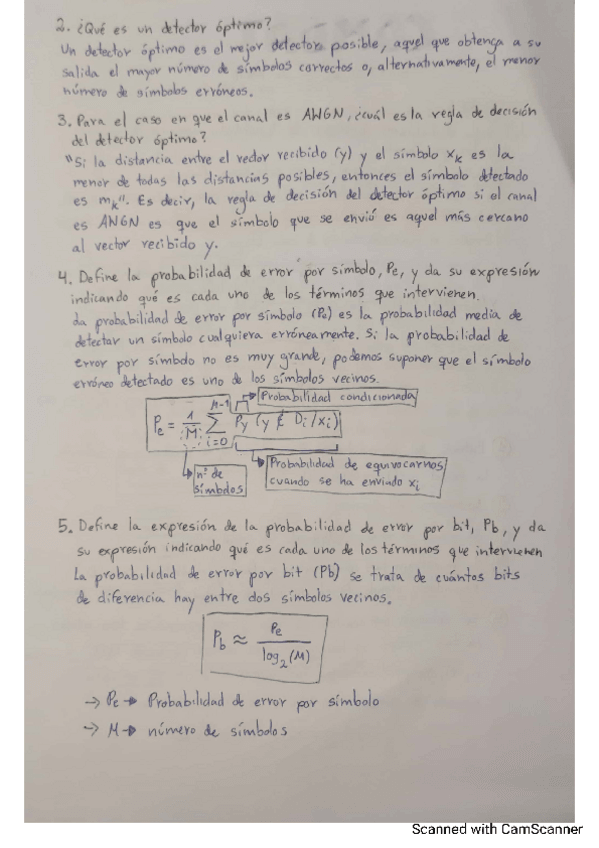 2. ¿Qué es un detector óptimo?
Un detector óptimo es el mejor detector posible, aquel que obtenga a su
salida el mayor número de símbolos correctos o, alternativamente, el menor
número de símbolos erróneos.
3. Para el caso en que el canal es AWGN, ¿cuál es la regla de decisión
del detector óptimo?
"Si la distancia entre el vector recibido (y) y el símbolo xk es la
menor de todas las distancias posibles, entonces el símbolo detectado
es mk". Es decir, la regla de decisión del detector óptimo si el canal
es AWGN es que el símbolo que se envió es aquel más cercano
al vector recibido y.
4. Define la probabilidad de error por símbolo, Pe, y da su expresión
indicando qué es cada uno de los términos que intervienen.
La probabilidad de error por símbolo (Pe) es la probabilidad media de
detectar un símbolo cualquiera erróneamente. Si la probabilidad de
error por símbolo no es muy grande, podemos suponer que el símbolo
erróneo detectado es uno de los símbolos vecinos.
Probabilidad condicionada
Pe = 1/M Σ_{i=0}^{M-1} Py (y ∉ Di/xi)
nº de símbolos
Probabilidad de equivocarnos
cuando se ha enviado xi
5. Define la expresión de la probabilidad de error por bit, Pb, y da
su expresión indicando qué es cada uno de los términos que intervienen
La probabilidad de error por bit (Pb) se trata de cuántos bits
de diferencia hay entre dos símbolos vecinos.
Pb ≈ Pe / log2(M)
→ Pe → Probabilidad de error por símbolo
→ M → número de símbolos
Scanned with CamScanner